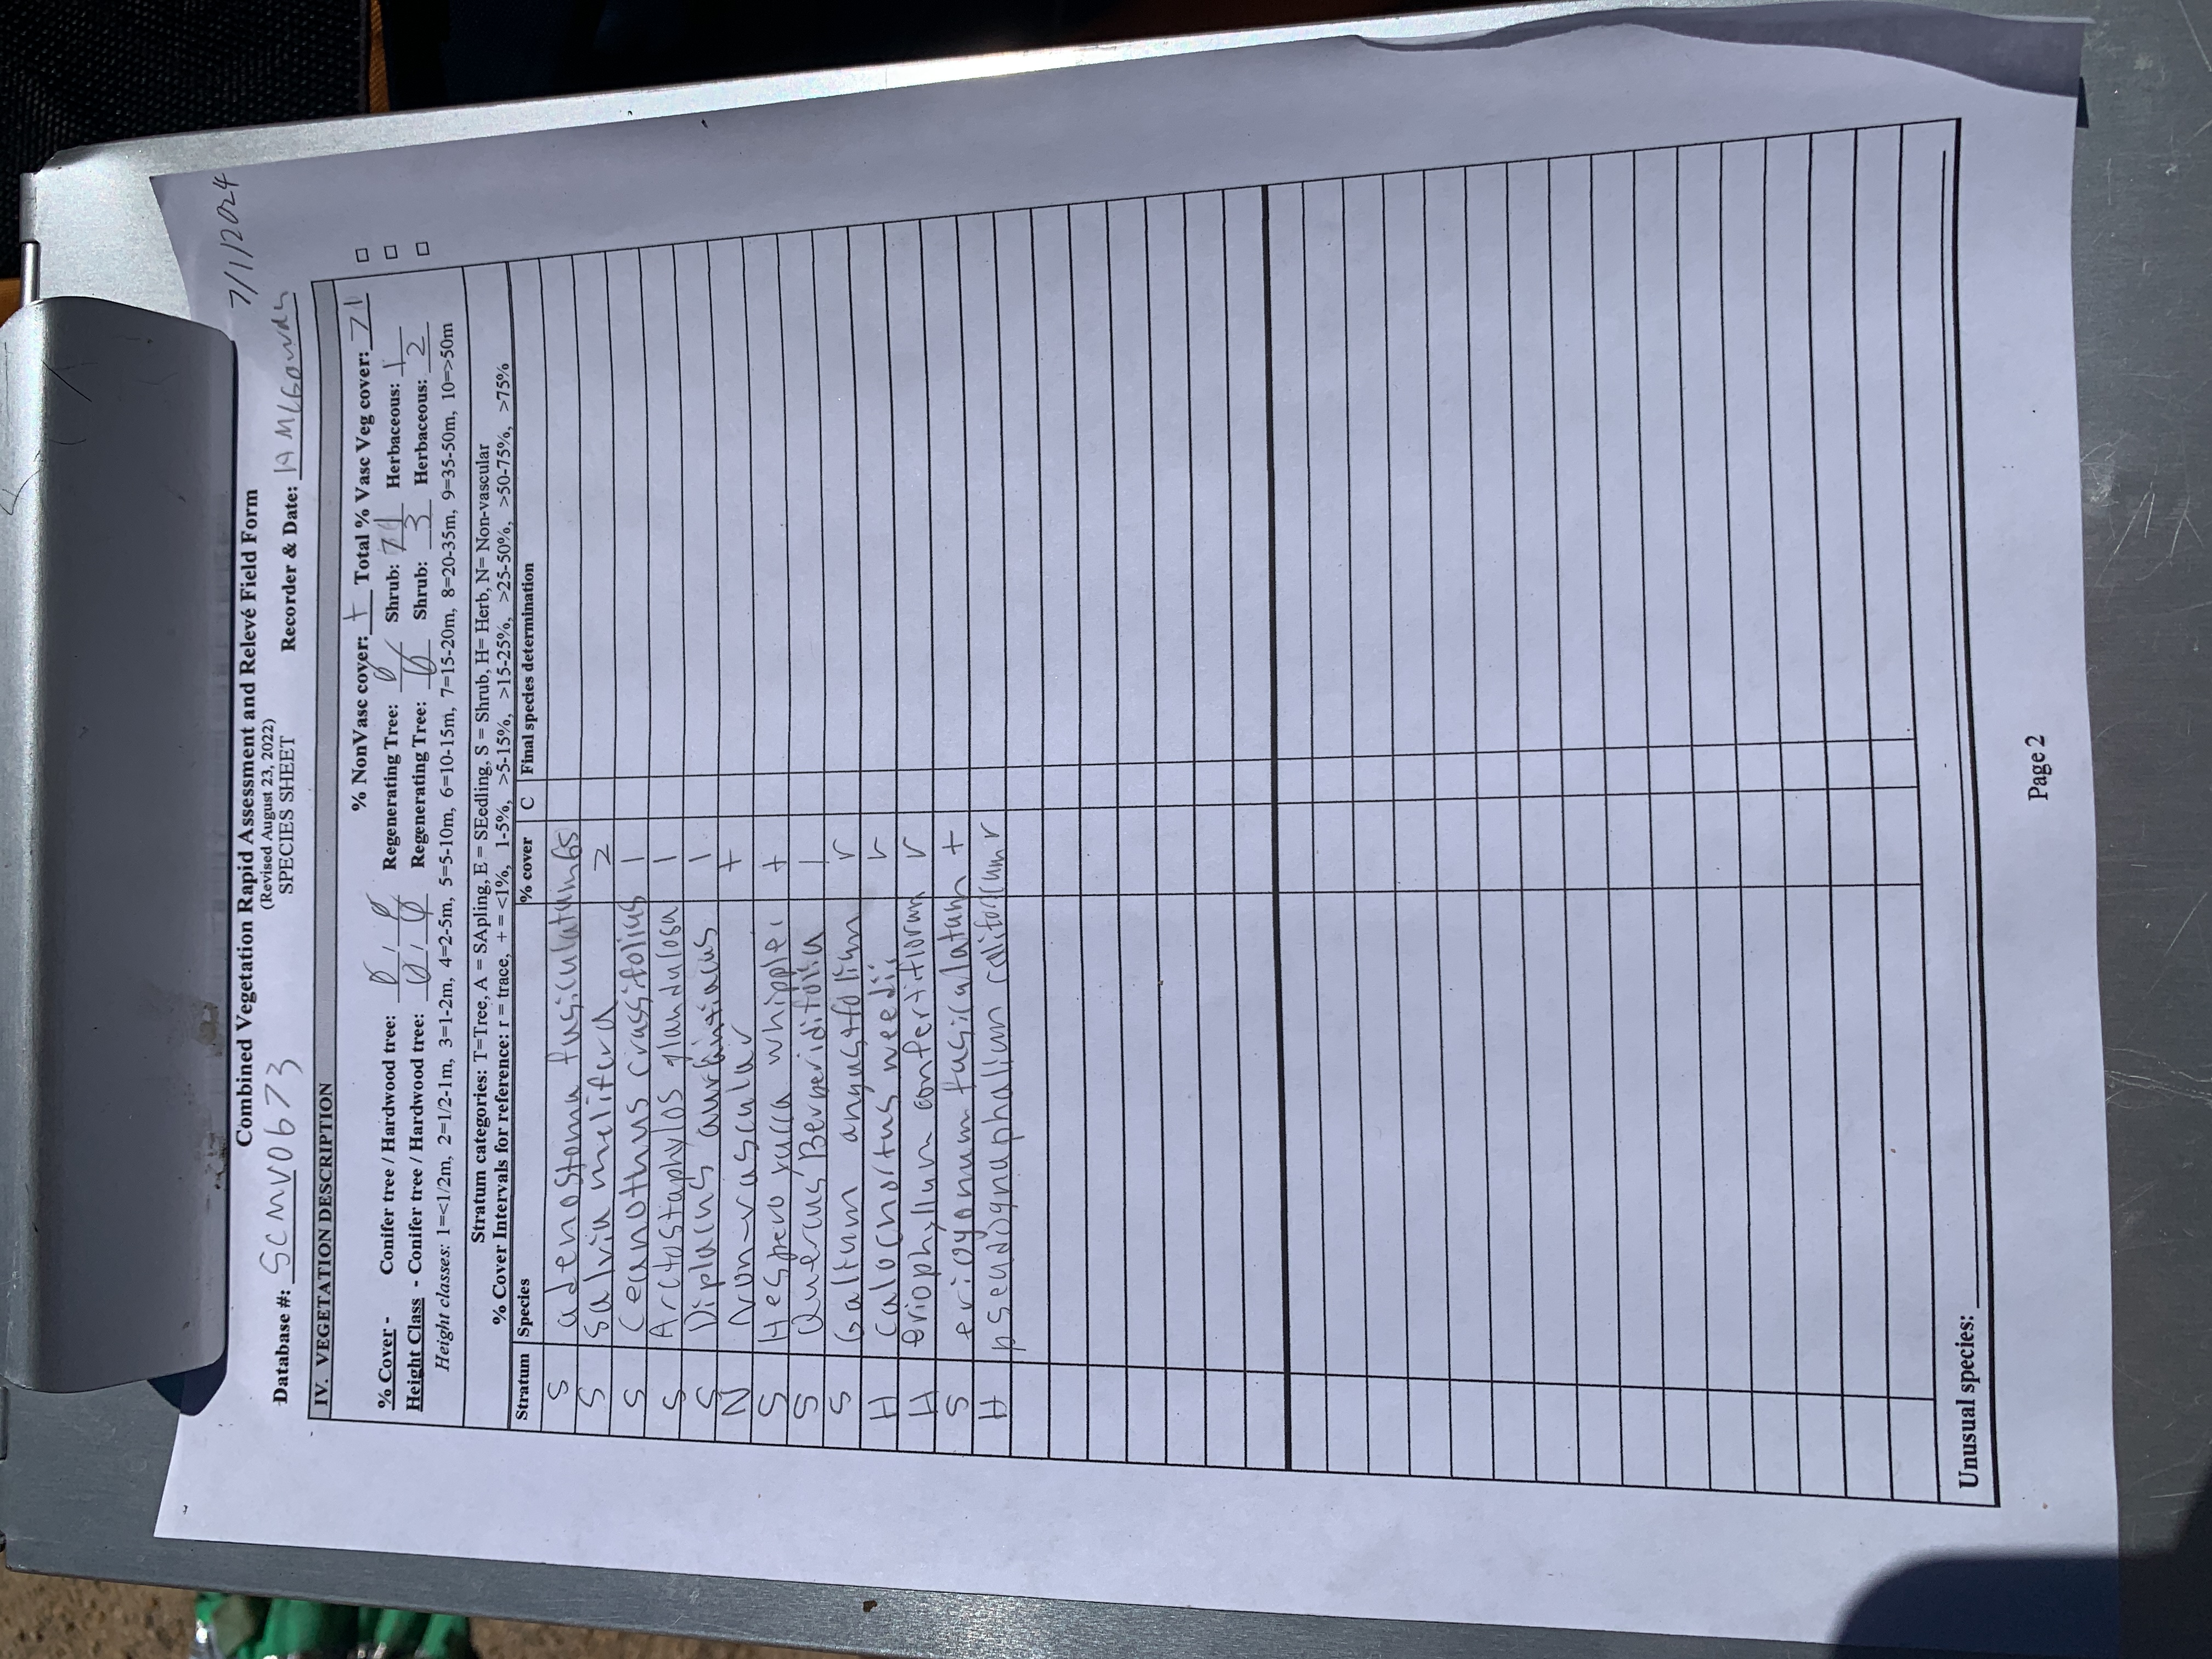 7/1/2024
Combined Vegetation Rapid Assessment and Relevé Field Form
(Revised August 23, 2022)
SPECIES SHEET
Database #: SCMV0673 Recorder & Date:
IV. VEGETATION DESCRIPTION
% NonVasc cover: + Total % Vasc Veg cover: 71 □
% Cover - Conifer tree / Hardwood tree: 0 / 0 Regenerating Tree: 0 Shrub: 71 Herbaceous: 1 □
Height Class - Conifer tree / Hardwood tree: 0 / 0 Regenerating Tree: 0 Shrub: 3 Herbaceous: 2 □
Height classes: 1=<1/2m, 2=1/2-1m, 3=1-2m, 4=2-5m, 5=5-10m, 6=10-15m, 7=15-20m, 8=20-35m, 9=35-50m, 10=>50m
Stratum categories: T=Tree, A = SApling, E = SEedling, S = Shrub, H= Herb, N= Non-vascular
% Cover Intervals for reference: r = trace, + = <1%, 1-5%, >5-15%, >15-25%, >25-50%, >50-75%, >75%
Stratum Species % cover C Final species determination
S adenostoma fasiculatum 65
S Salvia melifera 2
S Ceanothus crassifolius 1
S Arctostaphylos glandulosa 1
S Diplacus aurantiacus 1
N Non-vascular +
S Hespero yucca whipplei +
S Quercus Berberidifolia 1
S Galium angustfolium r
H calochortus weedii r
H Eriophyllum confertiflorum r
S eriogonum fasiculatum +
H pseudognaphalium californicum r
Unusual species:
Page 2